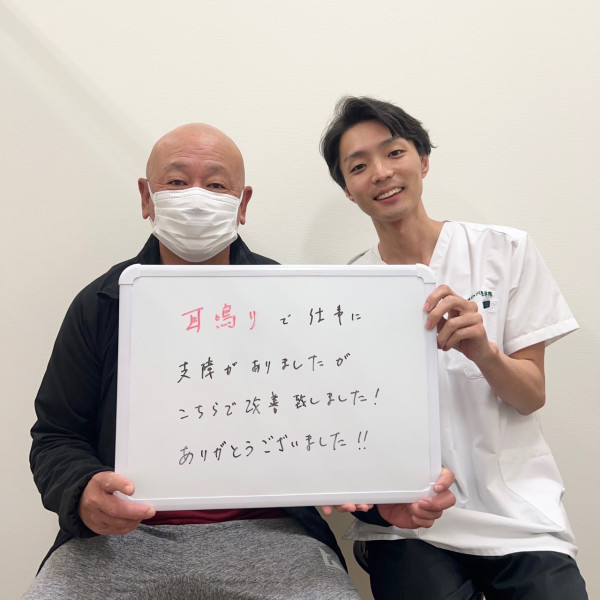 耳鳴りで仕事に
支障がありましたが
こちらで改善致しました!
ありがとうございました!!